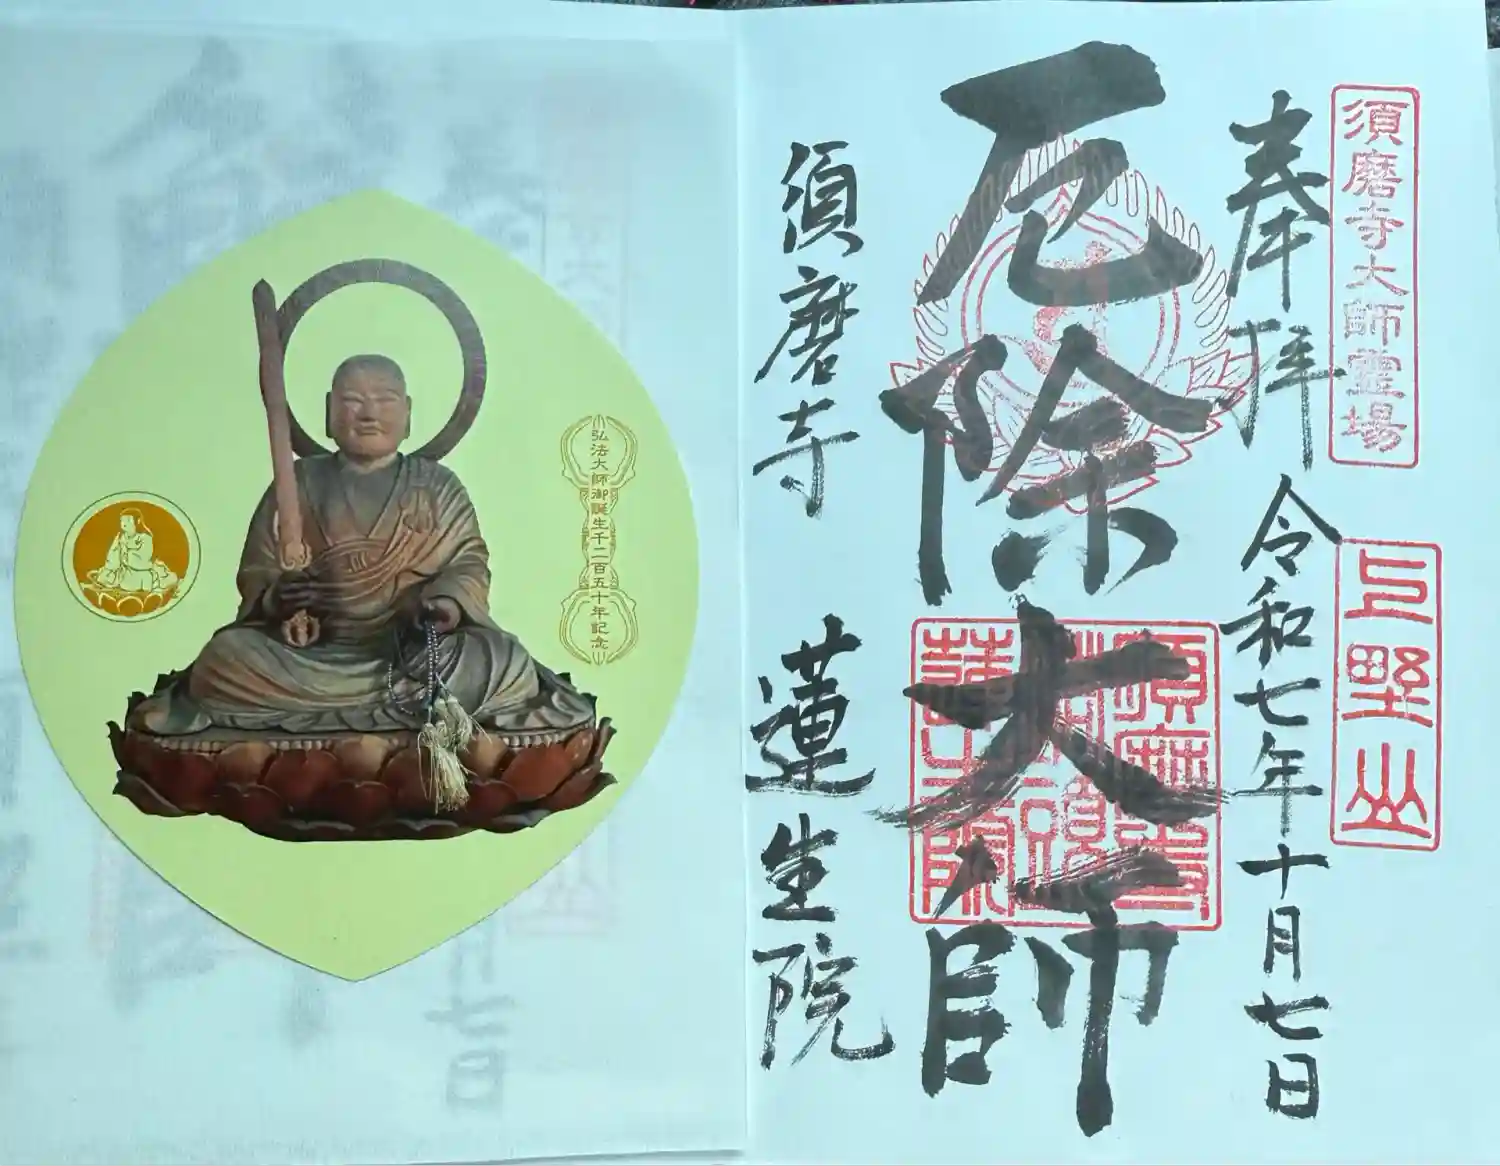 須磨寺大師靈場
上野山
奉拝 令和七年十月七日
厄除大師
須磨寺塔頭蓮生院
須磨寺 蓮生院
弘法大師御誕生千二百五十年記念